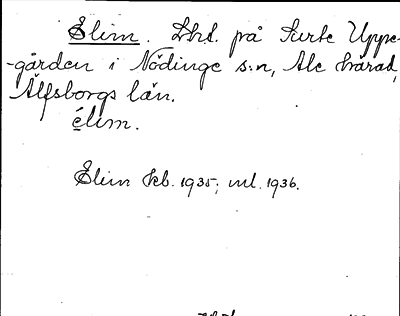 Elim. Lht. på Surte Uppe-
-gården i Nödinge s:n, Ale härad,
Älfsborgs län.
élim.
Elim kb. 1935; ml. 1936.